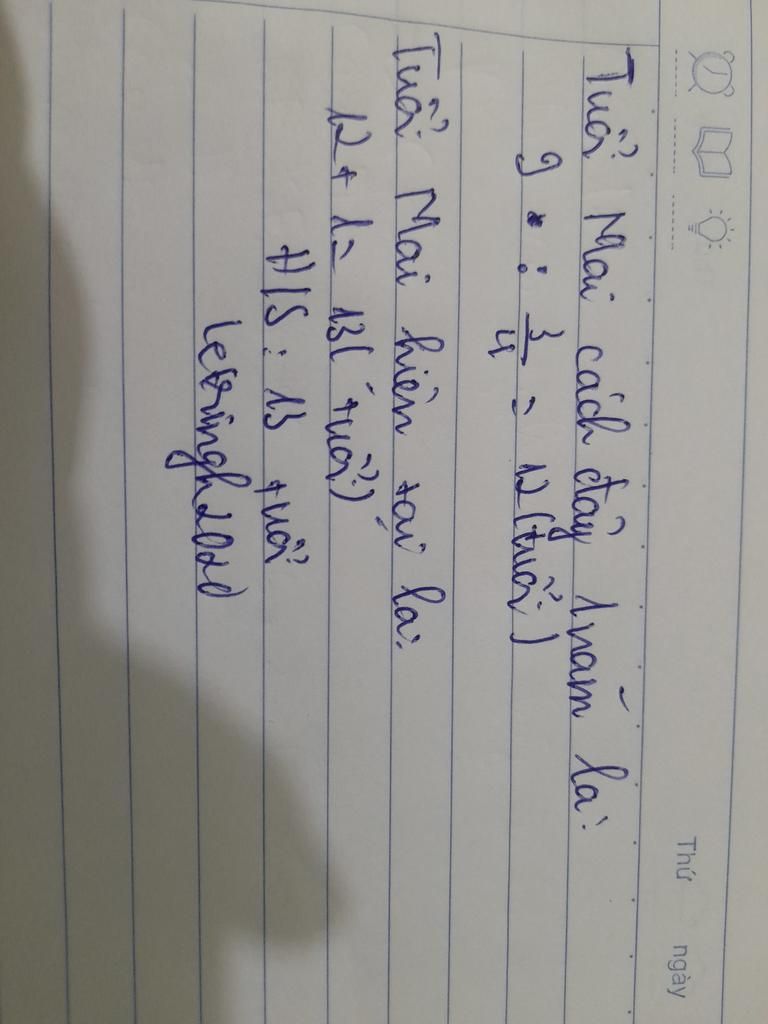 Thứ ngày
Tuổi Mai cách đây 1 năm là:
9 : 3/4 = 12 (tuổi)
Tuổi Mai hiện tại là:
12 + 1 = 13 (tuổi)
Đ/S : 13 tuổi